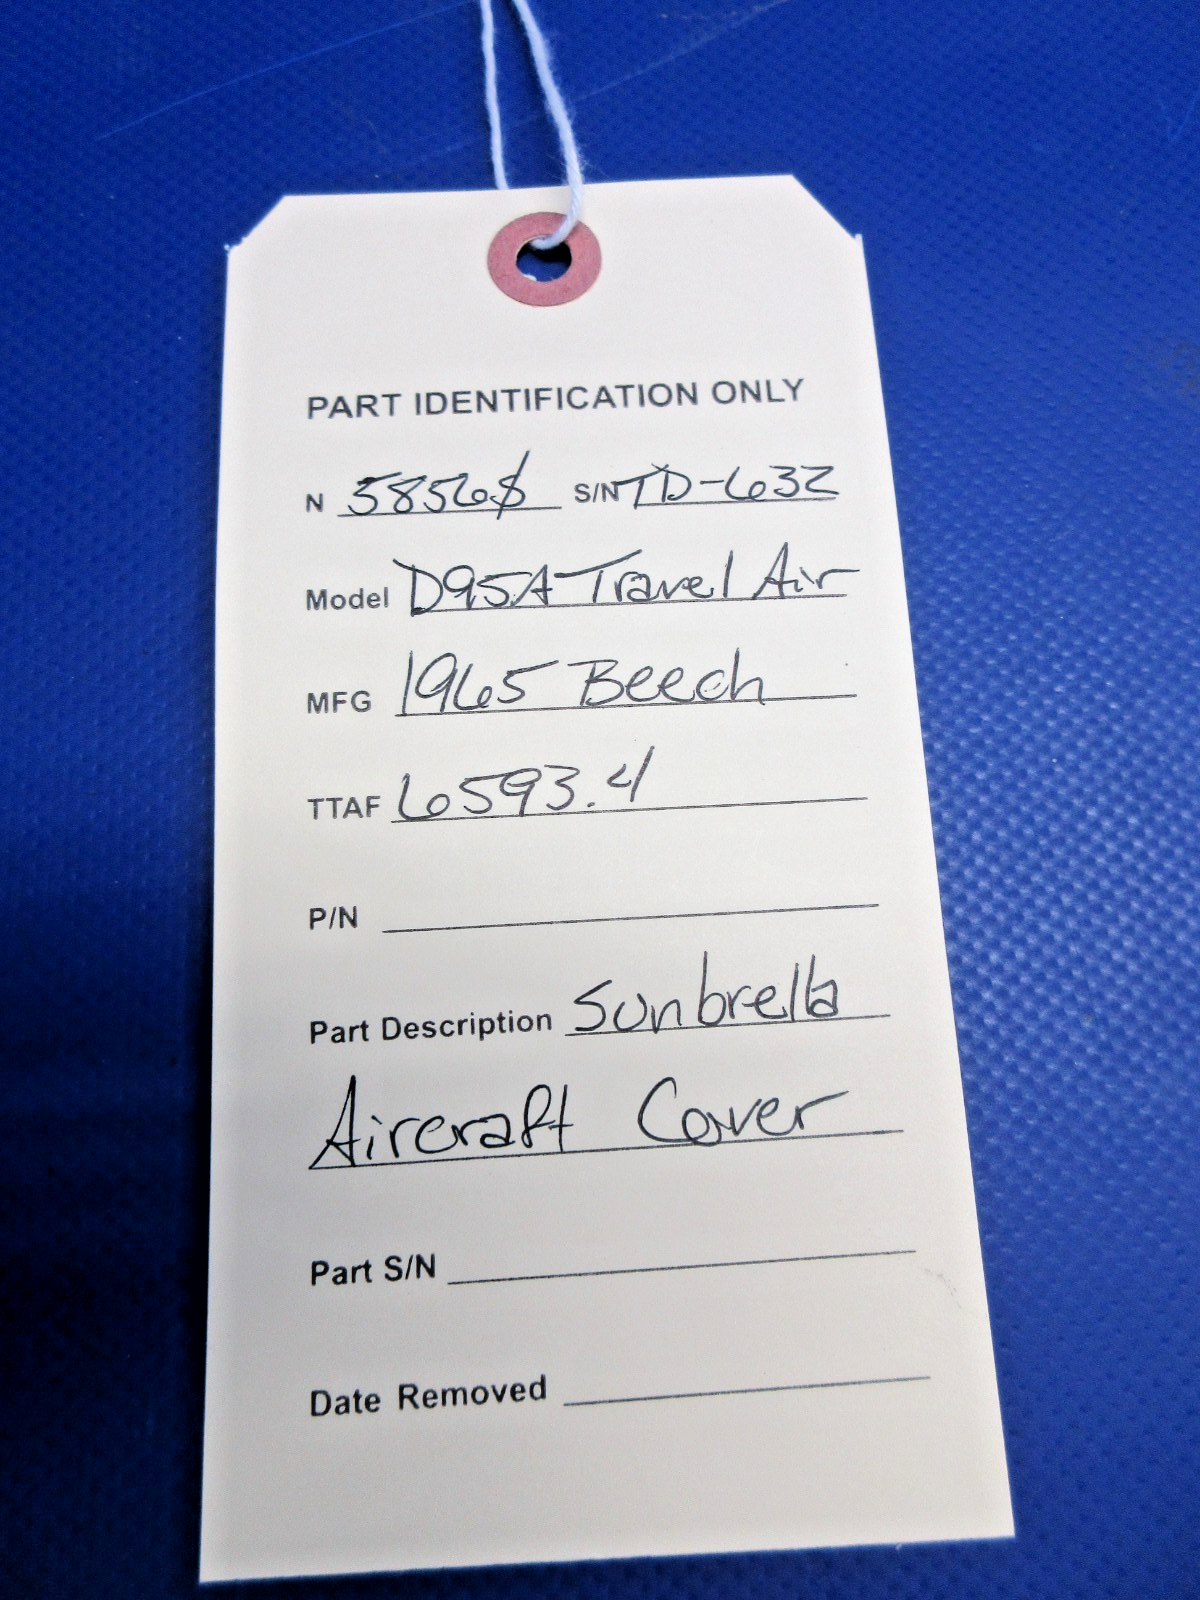 PART IDENTIFICATION ONLY
N 5856S S/N TD-632
Model D95A Travel Air
MFG 1965 Beech
TTAF 6593.4
P/N
Part Description Sunbrella
Aircraft Cover
Part S/N
Date Removed